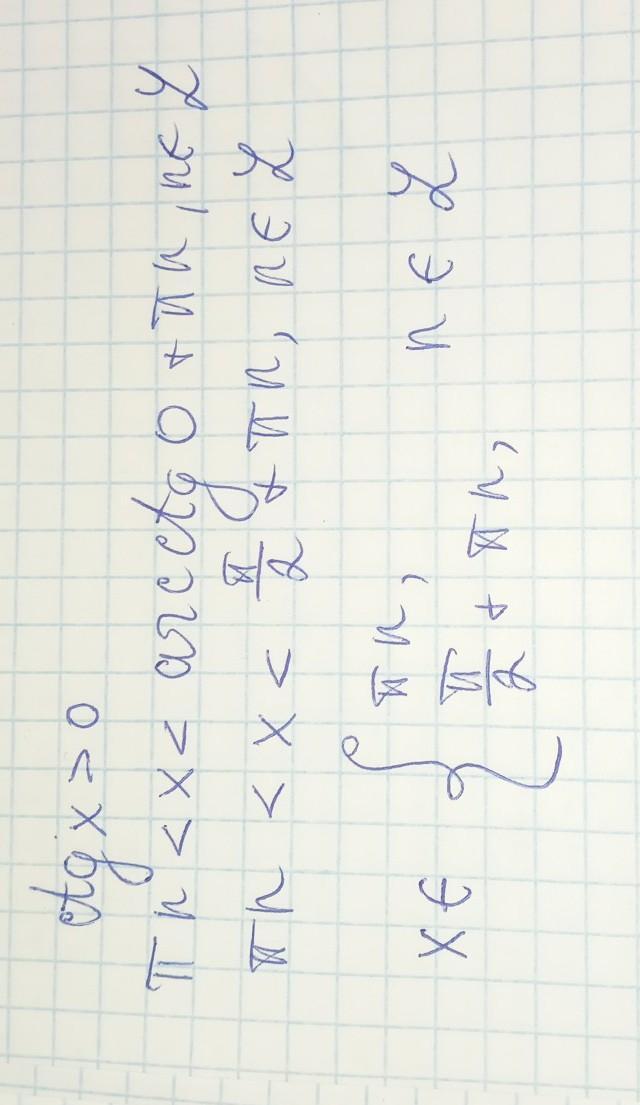 ctg x > 0
πn < x < arcctg 0 + πn, n ∈ Z
πn < x < π/2 + πn, n ∈ Z
x ∈ { πn,
π/2 + πn, n ∈ Z